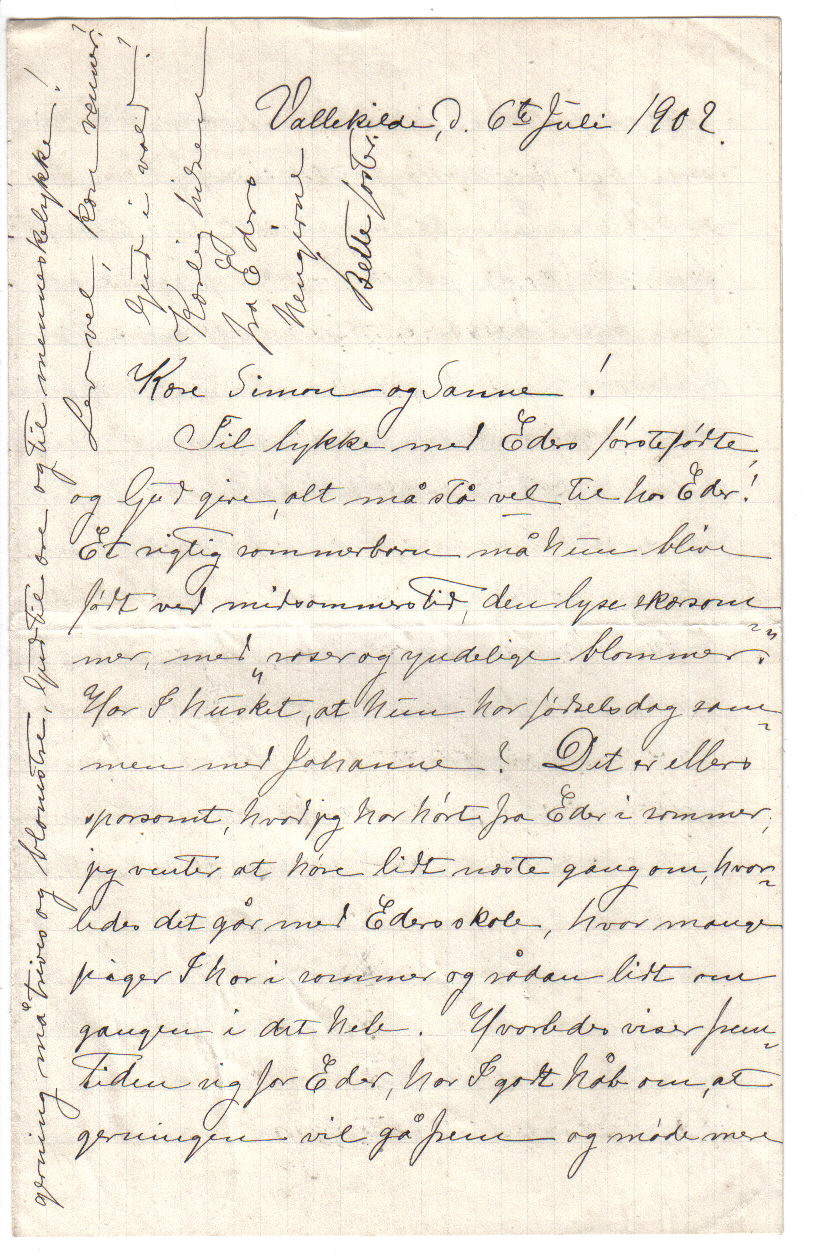 Vallekilde, d. 6te Juli 1902.
Kære Simon og Sanne!
Til lykke med Eders førstefødte,
og Gud give, alt må stå vel til hos Eder!
Et rigtig sommerbarn må hun blive
født ved midsommerstid, den lyse skærsom
mer, med „roser og yndelige blommer“.
Har I husket, at hun har fødselsdag sam-
men med Johanne? Det er ellers
sparsomt, hvad jeg har hørt fra Eder i sommer,
jeg venter at høre lidt næste gang om, hvor-
ledes det går med Eders skole, hvor mange
piger I har i sommer og sådan lidt om
gangen i det hele. Hvorledes viser frem-
tiden sig for Eder, har I godt håb om, at
gerningen vil gå frem og møde mere
gerning må trives og blomstre, Gud til ære og til menneskelykke!
Lev vel, kære venner!
Gud i vold!
Kærlig hilsen
fra Eders
hengivne